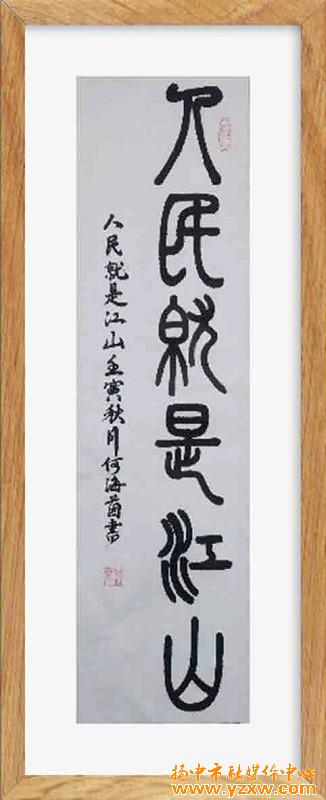 人民就是江山
人民就是江山壬寅秋月何海茵書
扬中市融媒体中心
www.yzxw.com